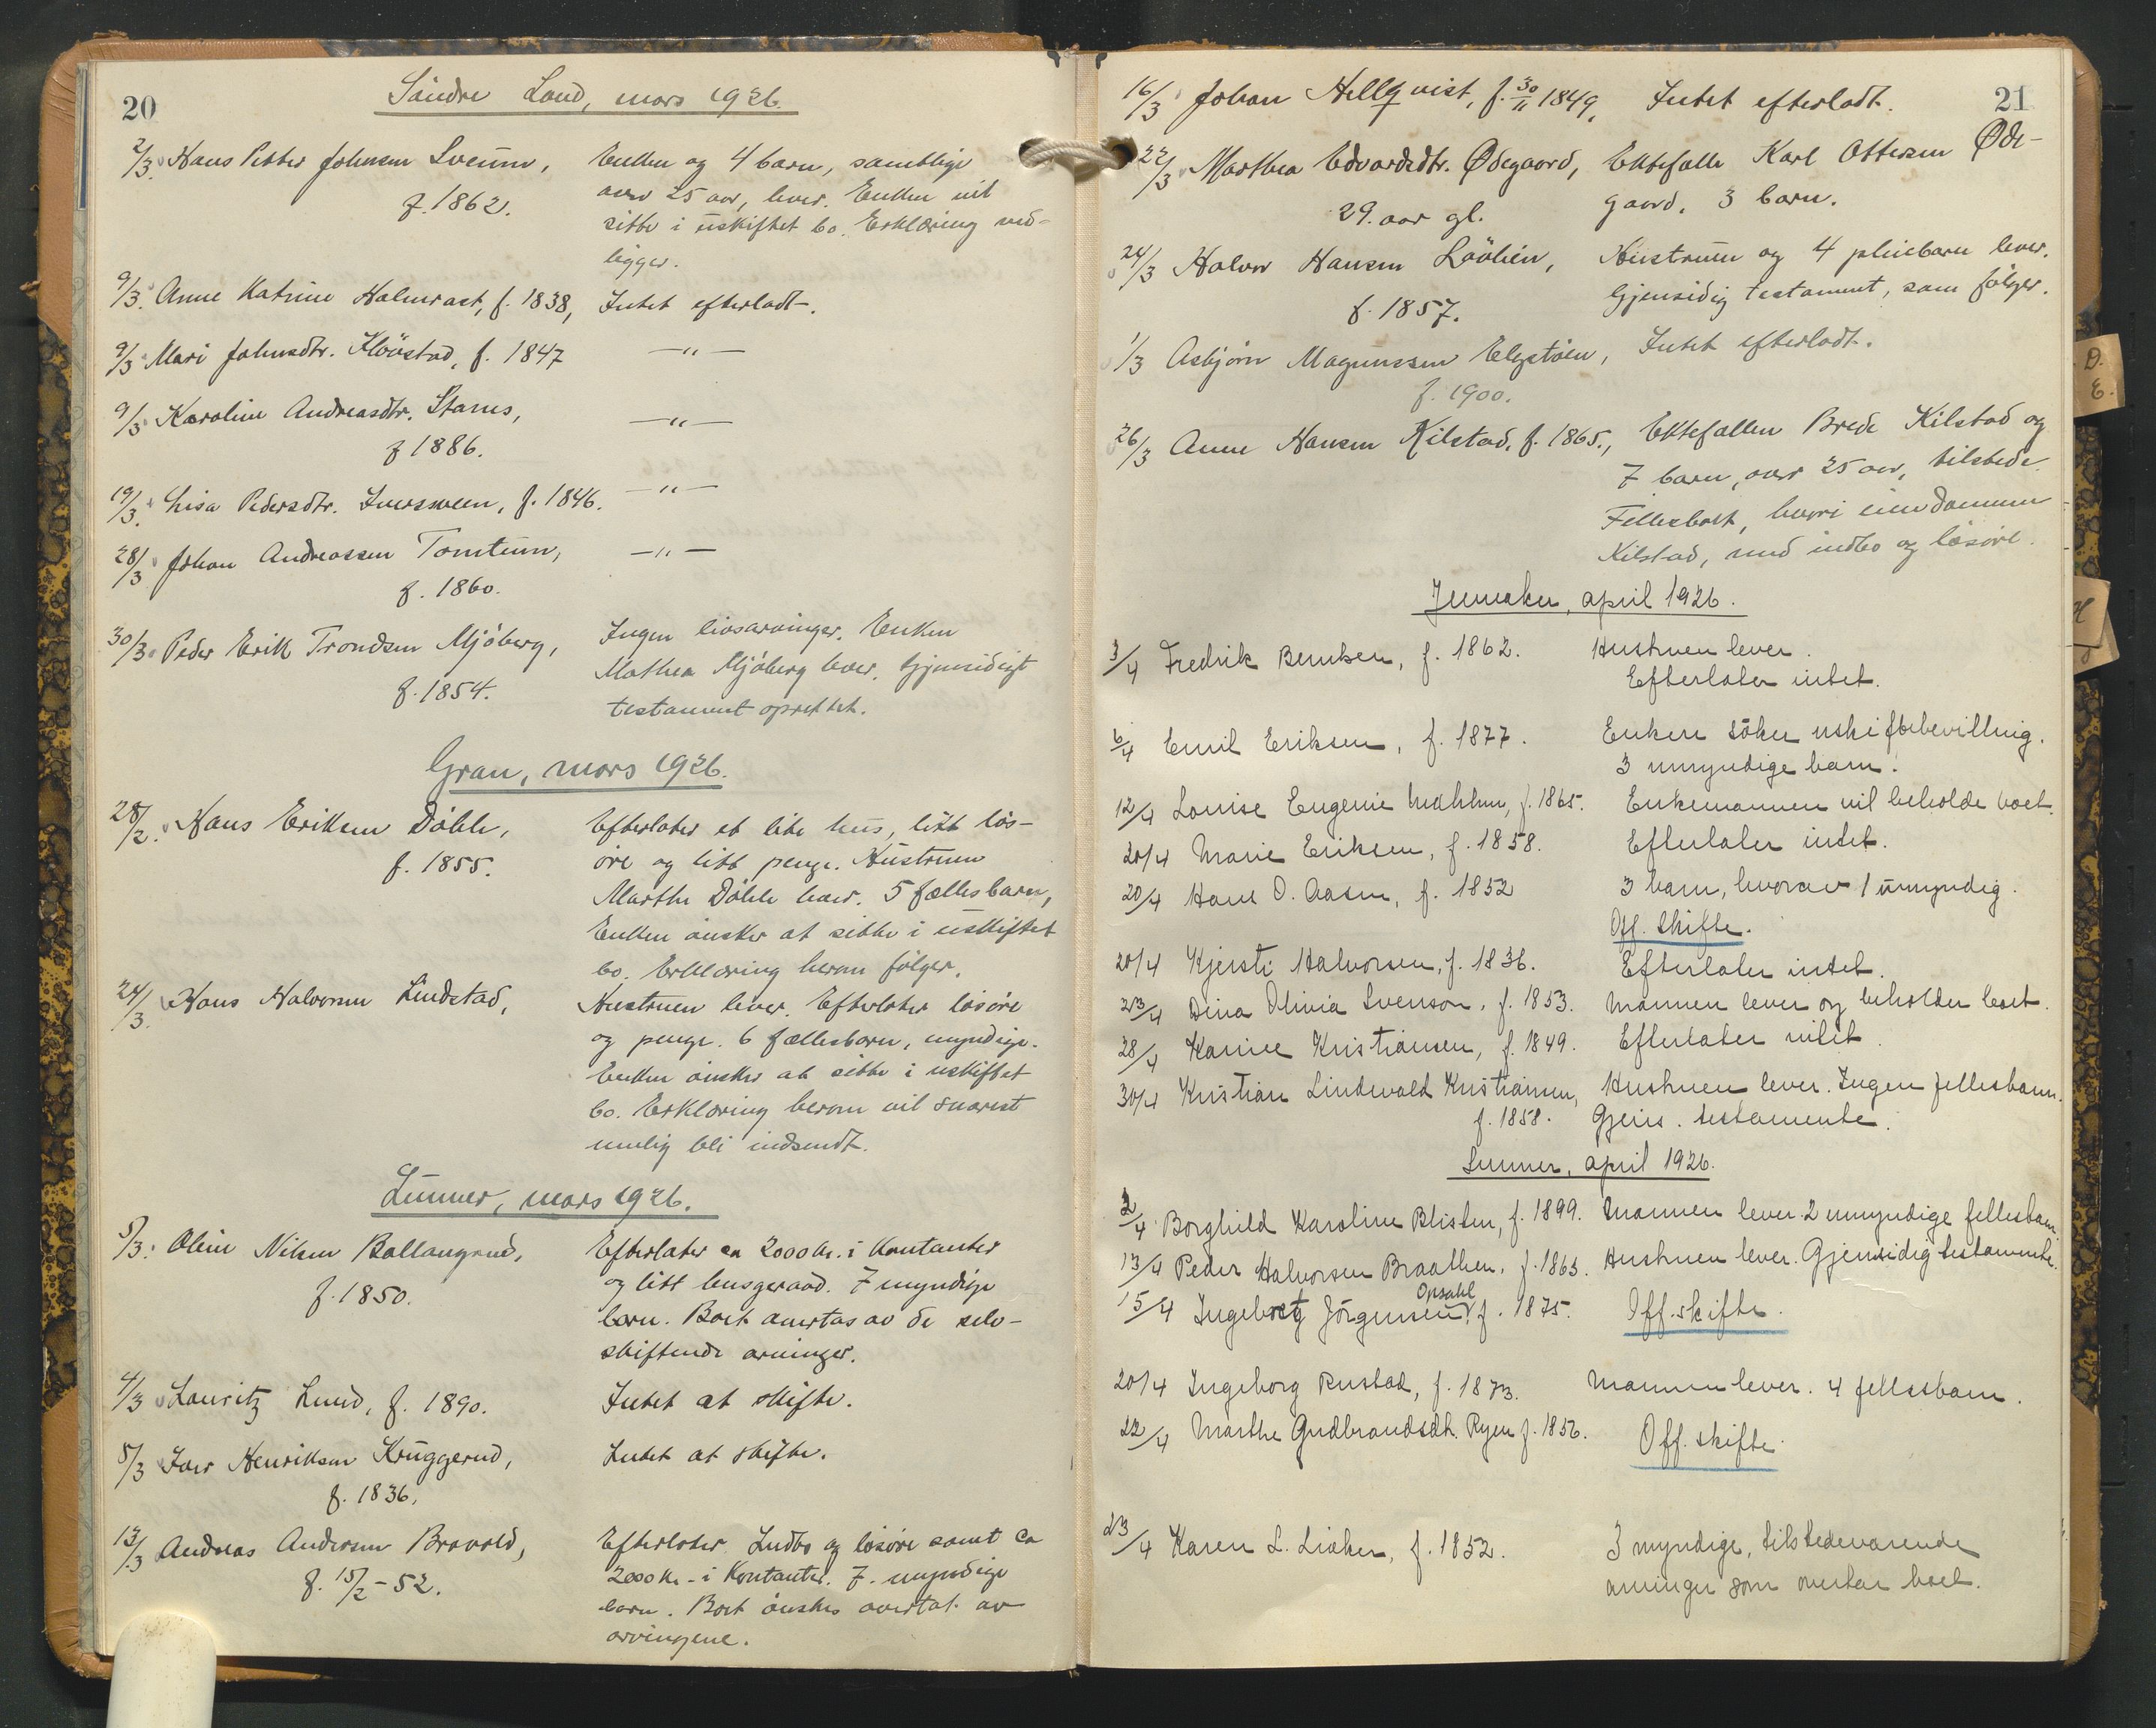 20
Søndre Land, mars 1926.
2/3. Hans Petter Johnsen Sveum, Enken og 4 barn, samtlige
f. 1862. over 25 aar, lever. Enken vil
sitte i uskiftet bo. Erklæring ved-
ligger.
9/3. Anne Katrine Halmrast, f. 1838, Intet efterladt.
9/3 Mari Johnsdtr. Kløvstad, f. 1847 —"—
9/3 Karoline Andreasdtr. —"—
f 1886.
19/3. Lisa Pedersdtr. Iversveen, f. 1846. —"—
28/3 Johan Andreassen Tomtum, —"—
f. 1860.
30/3 Peder Erik Trondsen Mjøberg, Ingen livsarvinger. Enken
f. 1854. Mathea Mjøberg lever. Gjensidigt
testament oprettet.
Gran, mars 1926.
28/2. Hans Eriksen Døhle, Efterlater et lite hus, litt løs-
f. 1855. øre og litt penge. Hustruen
Marthe Døhle lever. 5 fællesbarn,
Enken ønsker at sitte i uskiftet
bo. Erklæring herom følger.
24/3. Hans Halvorsen Lindstad, Hustruen lever. Efterlater løsøre
og penge. 6 fællesbarn, myndige.
Enken ønsker at sitte i uskiftet
bo. Erklæring herom vil snarest
mulig bli indsendt.
Lunner, mars 1926.
5/3. Nilsen Ballangrud, Efterlater ca 2000 kr. i kontanter
f. 1850. og litt husgeraad. 7 myndige
barn. Boet overtas av de selv-
skiftende arvinger.
4/3 Lauritz Lund, f. 1890. Intet at skifte.
5/3 Iver Henriksen Kruggerud, Intet at skifte.
f. 1836.
13/3 Andreas Andersen Bravold, Efterlater. Indbo og løsøre samt ca
f. 15/2 - 52. 2000 kr - i kontanter. 7. myndige
barn. Boet ønskes overtat av
arvingene.
21
16/3 Johan Hellqvist, f. 30/11 1849, Intet efterladt.
22/3 Marthea Edvardsdtr. Ødegaard, Ektefelle Karl Ottersen Øde-
29. aar gl. gaard. 3 barn.
24/3 Halvor Hansen Løvlien, Hustruen og 4 pleiebarn lever.
f. 1857. Gjensidig testament, som følger.
1/3 Asbjørn Magnussen Elgstøen, Intet efterladt.
f. 1900.
26/3 Anne Hansen Kilstad, f. 1865., Ektefellen Brede Kilstad og
7 barn, over 25 aar, tilstede.
Fellesboet, hvori eiendommen
Kilstad, med indbo og løsøre.
Jevnaker, april 1926.
3/4 Fredrik Berntsen, f. 1862. Hustruen lever.
Efterlater intet.
6/4 Emil Eriksen, f. 1877. Enken søker uskiftebevilling.
3 umyndige barn.
12/4 Louise Eugenie f. 1865. Enkemannen vil beholde boet.
20/4 Marie Eriksen, f. 1858. Efterlater intet.
20/4 Hans O. Aasen, f. 1852 3 barn, hvorav 1 umyndig.
Off. skifte.
20/4 Kjersti Halvorsen, f. 1836. Efterlater intet.
23/4 Dina Olivia Svenson, f. 1853. Mannen lever og beholder boet.
28/4 Karine Kristiansen, f. 1849. Efterlater intet.
30/4 Kristian Lindevald Kristiansen, Hustruen lever. Ingen fellesbarn.
f. 1858. Gjens. testamente.
Lunner, april 1926.
2/4 Borghild Karoline Blisten, f. 1899. Mannen lever. 2 umyndige fellesbarn.
13/4 Peder Halvorsen Braathen, f. 1863. Hustruen lever. Gjensidig testamente.
Opsahl
15/4 Ingeborg Jörgensen f. 1875. Off. skifte.
20/4 Ingeborg Rustad, f. 1873. Mannen lever. 4 fellesbarn.
22/4 Marthe Gudbrandsdt. Ryen f. 1856. Off. skifte.
23/4 Karen L. Liaker, f. 1852. 3 myndige, tilstedeværende
arvinger som overtar boet.
D.
E.
H